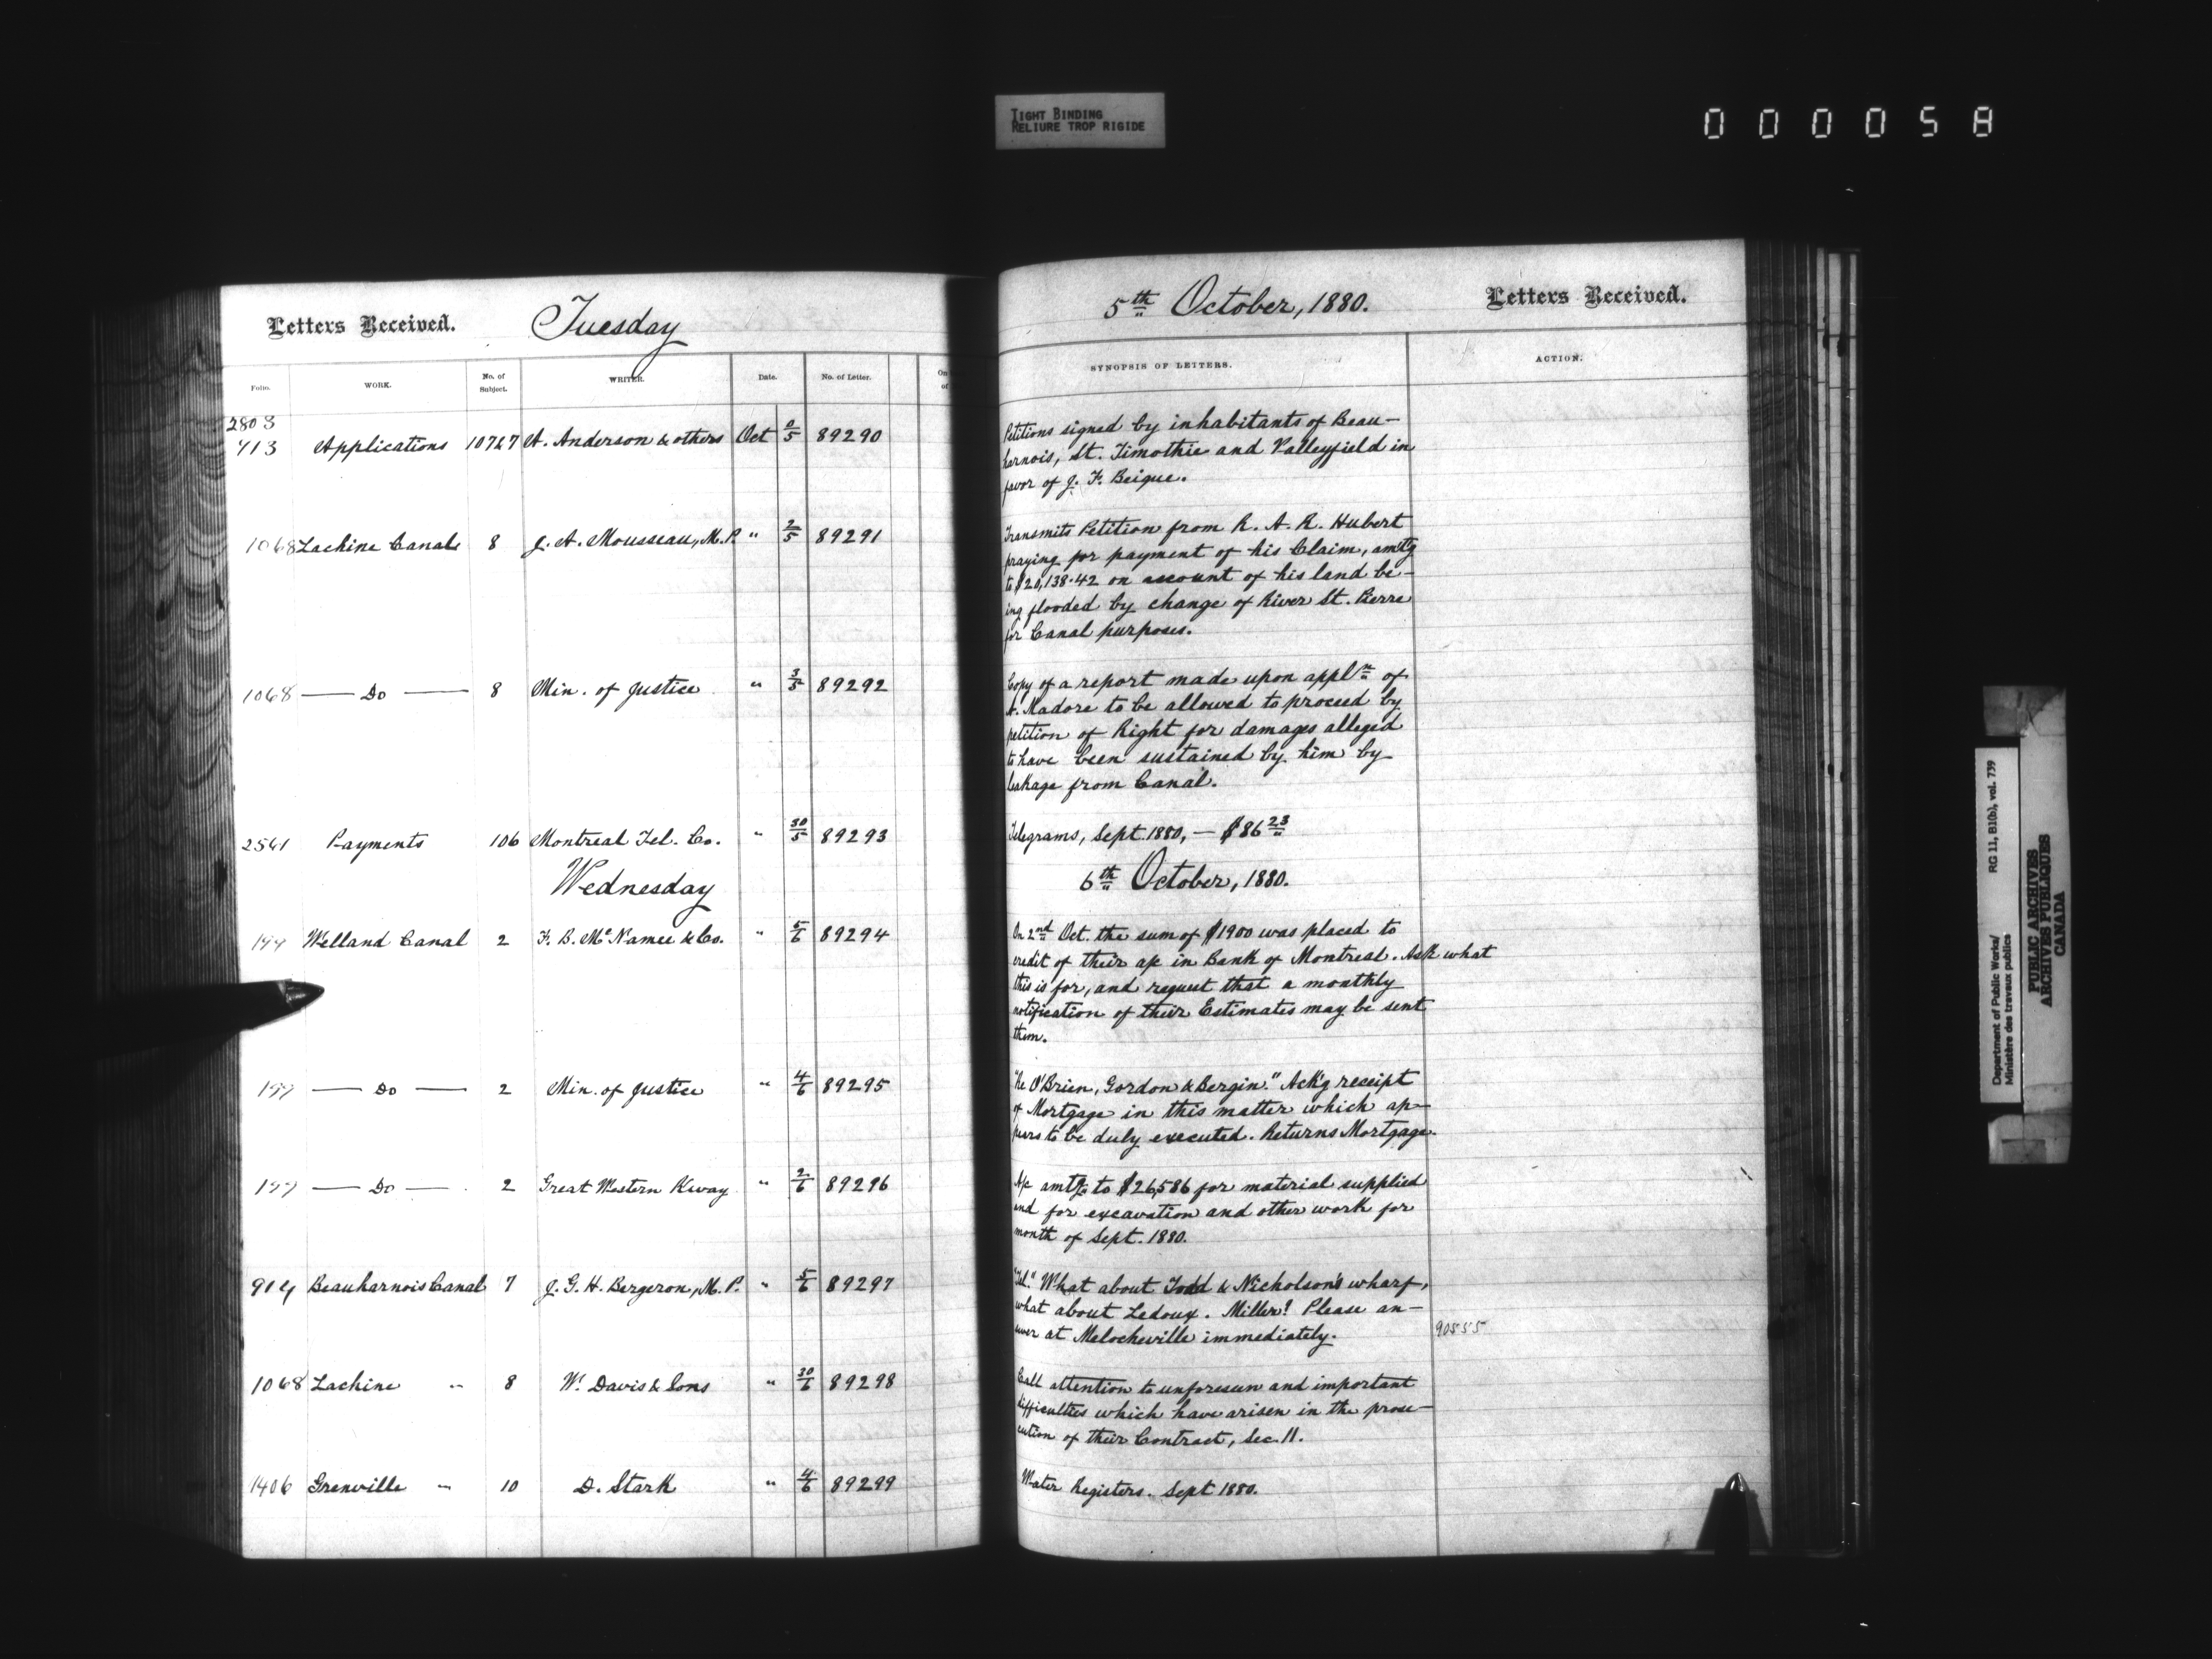 TIGHT BINDING
RELIURE TROP RIGIDE
000058
Letters Received. Tuesday
Folio. WORK. No. of Subject. WRITER. Date. No. of Letter. On of
2803
713 Applications 10767 A. Anderson & others Oct 0/5 89290
1068 Lachine Canal 8 J. A. Mousseau, M.P. " 2/5 89291
1068 — Do — 8 Min. of Justice " 3/5 89292
2561 Payments 106 Montreal Tel. Co. " 30/5 89293
Wednesday
199 Welland Canal 2 F. B. McNamee & Co. " 5/6 89294
199 — Do — 2 Min. of Justice " 4/6 89295
199 — Do — 2 Great Western Rway " 2/6 89296
914 Beauharnois Canal 7 J. G. H. Bergeron, M.P. " 5/6 89297
1068 Lachine " 8 W. Davis & Sons " 30/6 89298
1406 Grenville " 10 D. Stark " 4/6 89299
5th October, 1880. Letters Received.
SYNOPSIS OF LETTERS. ACTION.
Petitions signed by inhabitants of Beau-
harnois, St. Timothie and Valleyfield in
favor of J. F. Beique.
Transmits Petition from R. A. R. Hubert
praying for payment of his Claim, amtg
to $20,138.42 on account of his land be-
ing flooded by change of River St. Pierre
for Canal purposes.
Copy of a report made upon appln of
A. Madore to be allowed to proceed by
petition of Right for damages alleged
to have been sustained by him by
leakage from Canal.
Telegrams, Sept. 1880, — $86 23
6th October, 1880.
On 2nd Oct. the sum of $1900 was placed to
credit of their a/c in Bank of Montreal. Ask what
this is for, and request that a monthly
notification of their Estimates may be sent
them.
"Re O'Brien, Gordon & Bergin." Ack'g receipt
of Mortgage in this matter which ap-
pears to be duly executed. Returns Mortgage.
A/c amtg to $26,586 for material supplied
and for excavation and other work for
month of Sept. 1880.
"Tel." What about Todd & Nicholson's wharf,
what about Ledoux. Miller? Please an-
swer at Melocheville immediately. 90555
Call attention to unforeseen and important
difficulties which have arisen in the prose-
cution of their Contract, Sec. 11.
Water Registers. Sept 1880.
Department of Public Works/ RG 11, B1(b), vol. 739
Ministère des travaux publics
PUBLIC ARCHIVES
ARCHIVES PUBLIQUES
CANADA